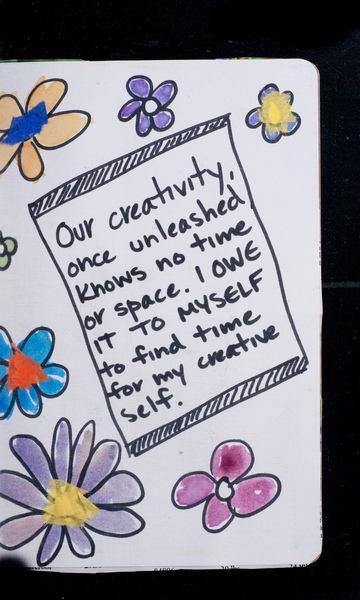 Our creativity,
once unleashed
knows no time
or space. I OWE
IT TO MYSELF
to find time
for my creative
self.